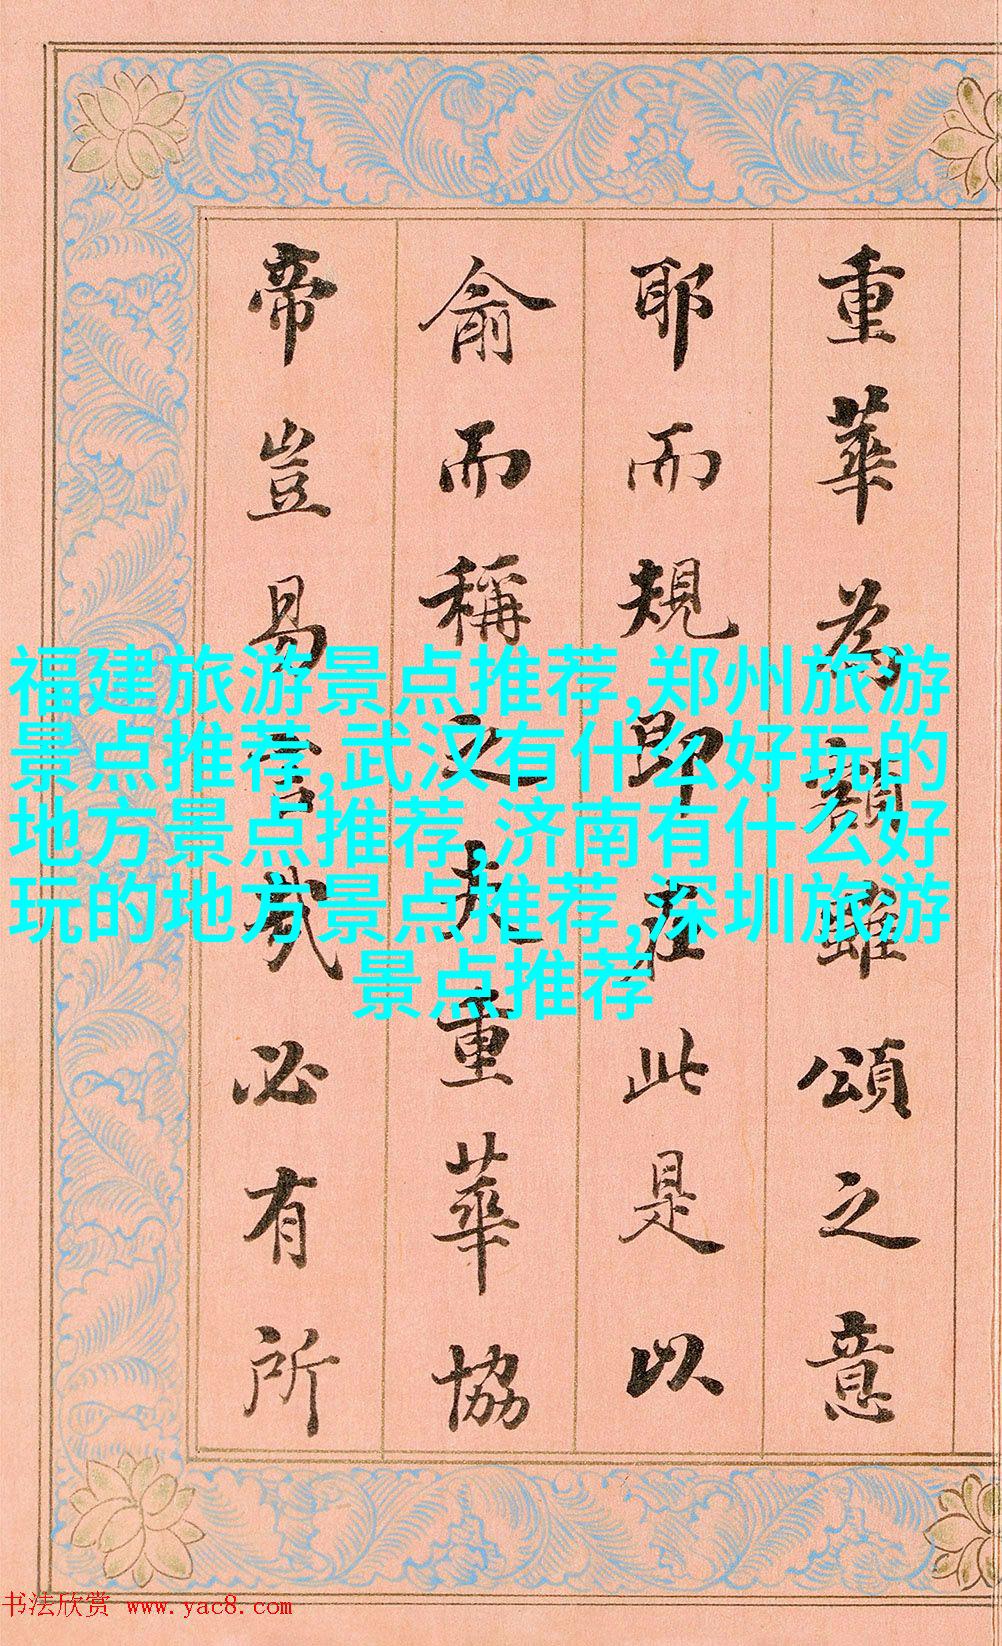 重華為額雖頌之意
耶而規即在此是以
俞而稱之夫重華協
帝豈易言哉必有所
福建旅游景点推荐,郑州旅游
景点推荐,武汉有什么好玩的
地方景点推荐,济南有什么好
玩的地方景点推荐,深圳旅游
景点推荐
书法欣赏 www.yac8.com